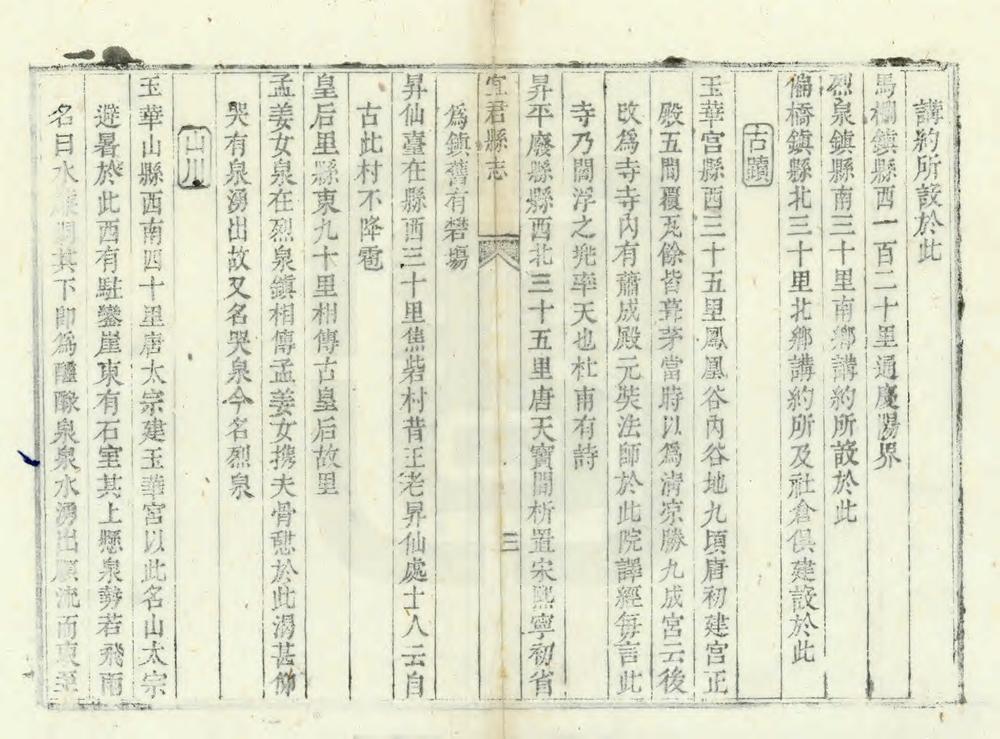 講約所設於此
馬欄鎮縣西一百二十里通慶陽界
烈泉鎮縣南三十里南鄉講約所設於此
偏橋鎮縣北三十里北鄉講約所及社倉俱建設於此
古蹟
玉華宮縣西三十五里鳳凰谷內谷地九頃唐初建宮正
殿五間覆瓦餘皆葺茅當時以爲清凉勝九成宮云後
改爲寺寺內有肅成殿元奘法師於此院譯經每言此
寺乃閻浮之兠率天也杜甫有詩
昇平廢縣縣西北三十五里唐天寶間析置宋熙寧初省
宜君縣志
三
爲鎮舊有礬塲
昇仙臺在縣西三十里焦砦村昔王老昇仙處土人云自
古此村不降雹
皇后里縣東九十里相傳古皇后故里
孟姜女泉在烈泉鎮相傳孟姜女携夫骨憇於此渴甚仰
哭有泉湧出故又名哭泉今名烈泉
山川
玉華山縣西南四十里唐太宗建玉華宮以此名山太宗
避暑於此西有駐鑾崖東有石室其上懸泉勢若飛雨
名曰水簾洞其下即爲醴醁泉泉水湧出順流而東至